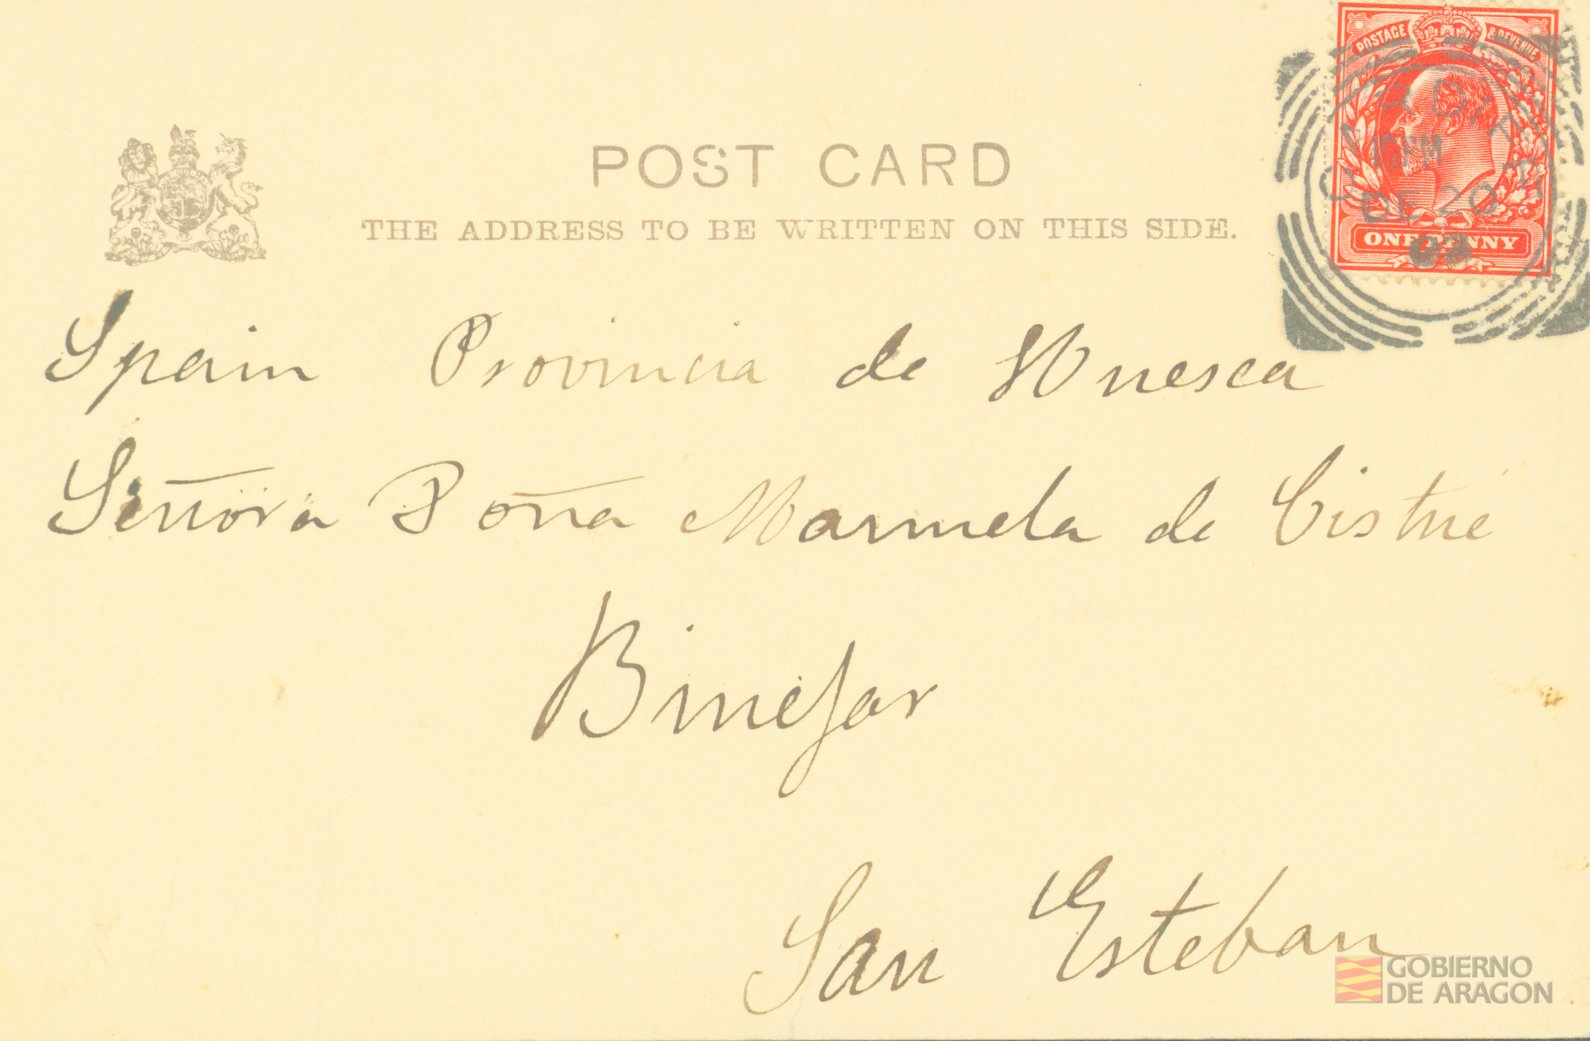 POSTAGE & REVENUE
10 PM
DE 20
03
ONE PENNY
POST CARD
THE ADDRESS TO BE WRITTEN ON THIS SIDE.
Spain Provincia de Huesca
Señora Doña Marmela de Cistué
Binefar
San Esteban
GOBIERNO
DE ARAGON